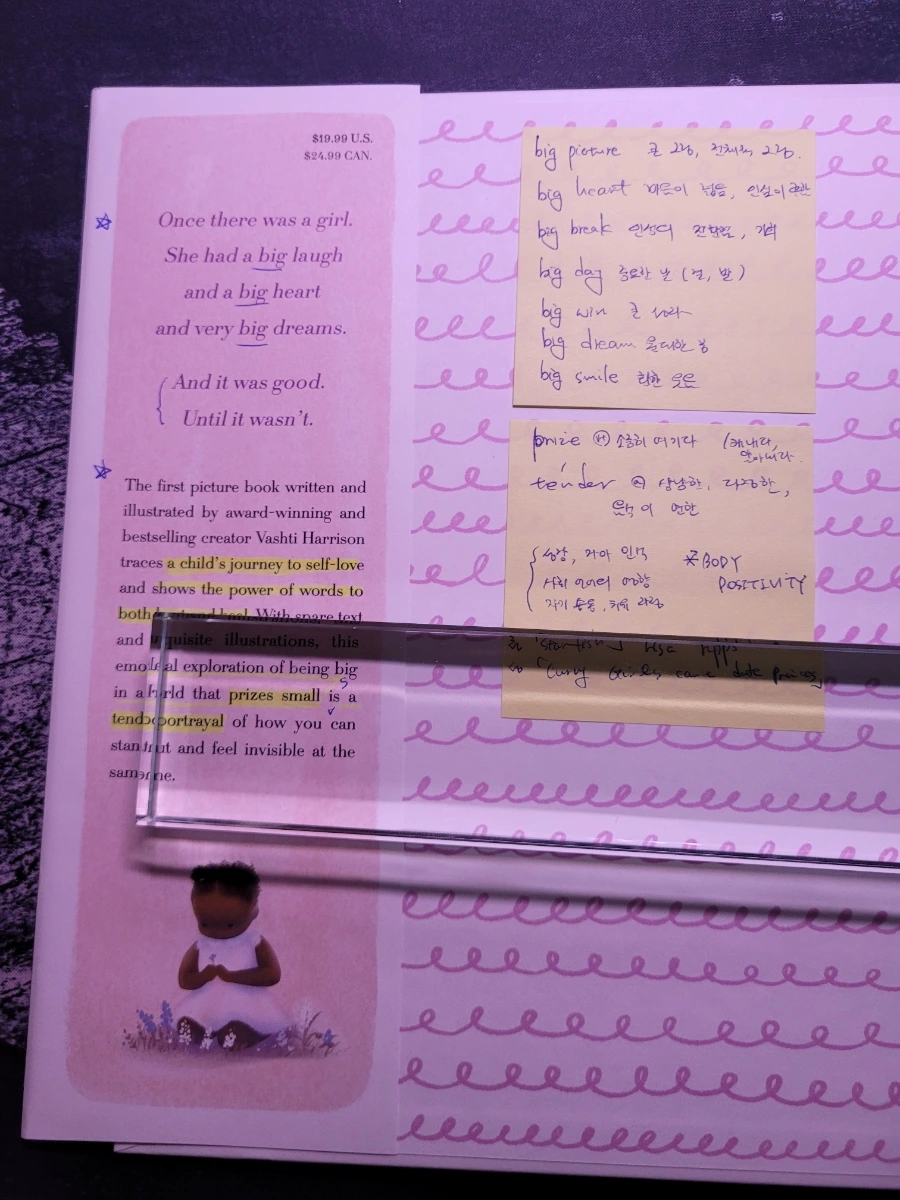 $19.99 U.S.
$24.99 CAN.
Once there was a girl.
She had a big laugh
and a big heart
and very big dreams.
And it was good.
Until it wasn't.
The first picture book written and
illustrated by award-winning and
bestselling creator Vashti Harrison
traces a child's journey to self-love
and shows the power of words to
both With spare text
and exquisite illustrations, this
emotional exploration of being big
in a world that prizes small is a
tender portrayal of how you can
stand out and feel invisible at the
same time.
big picture 큰 그림, 전체적 그림.
big heart 마음이 넓음, 인심이 후한
big break 인생의 전환점, 기회
big day 중요한 날 (결, 발)
big win 큰 승리
big dream 원대한 꿈
big smile 환한 웃음
prize 소중히 여기다
tender 상냥한, 다정한,
성장, 자아 인식
BODY
POSITIVITY
"Curvy Girls can't date